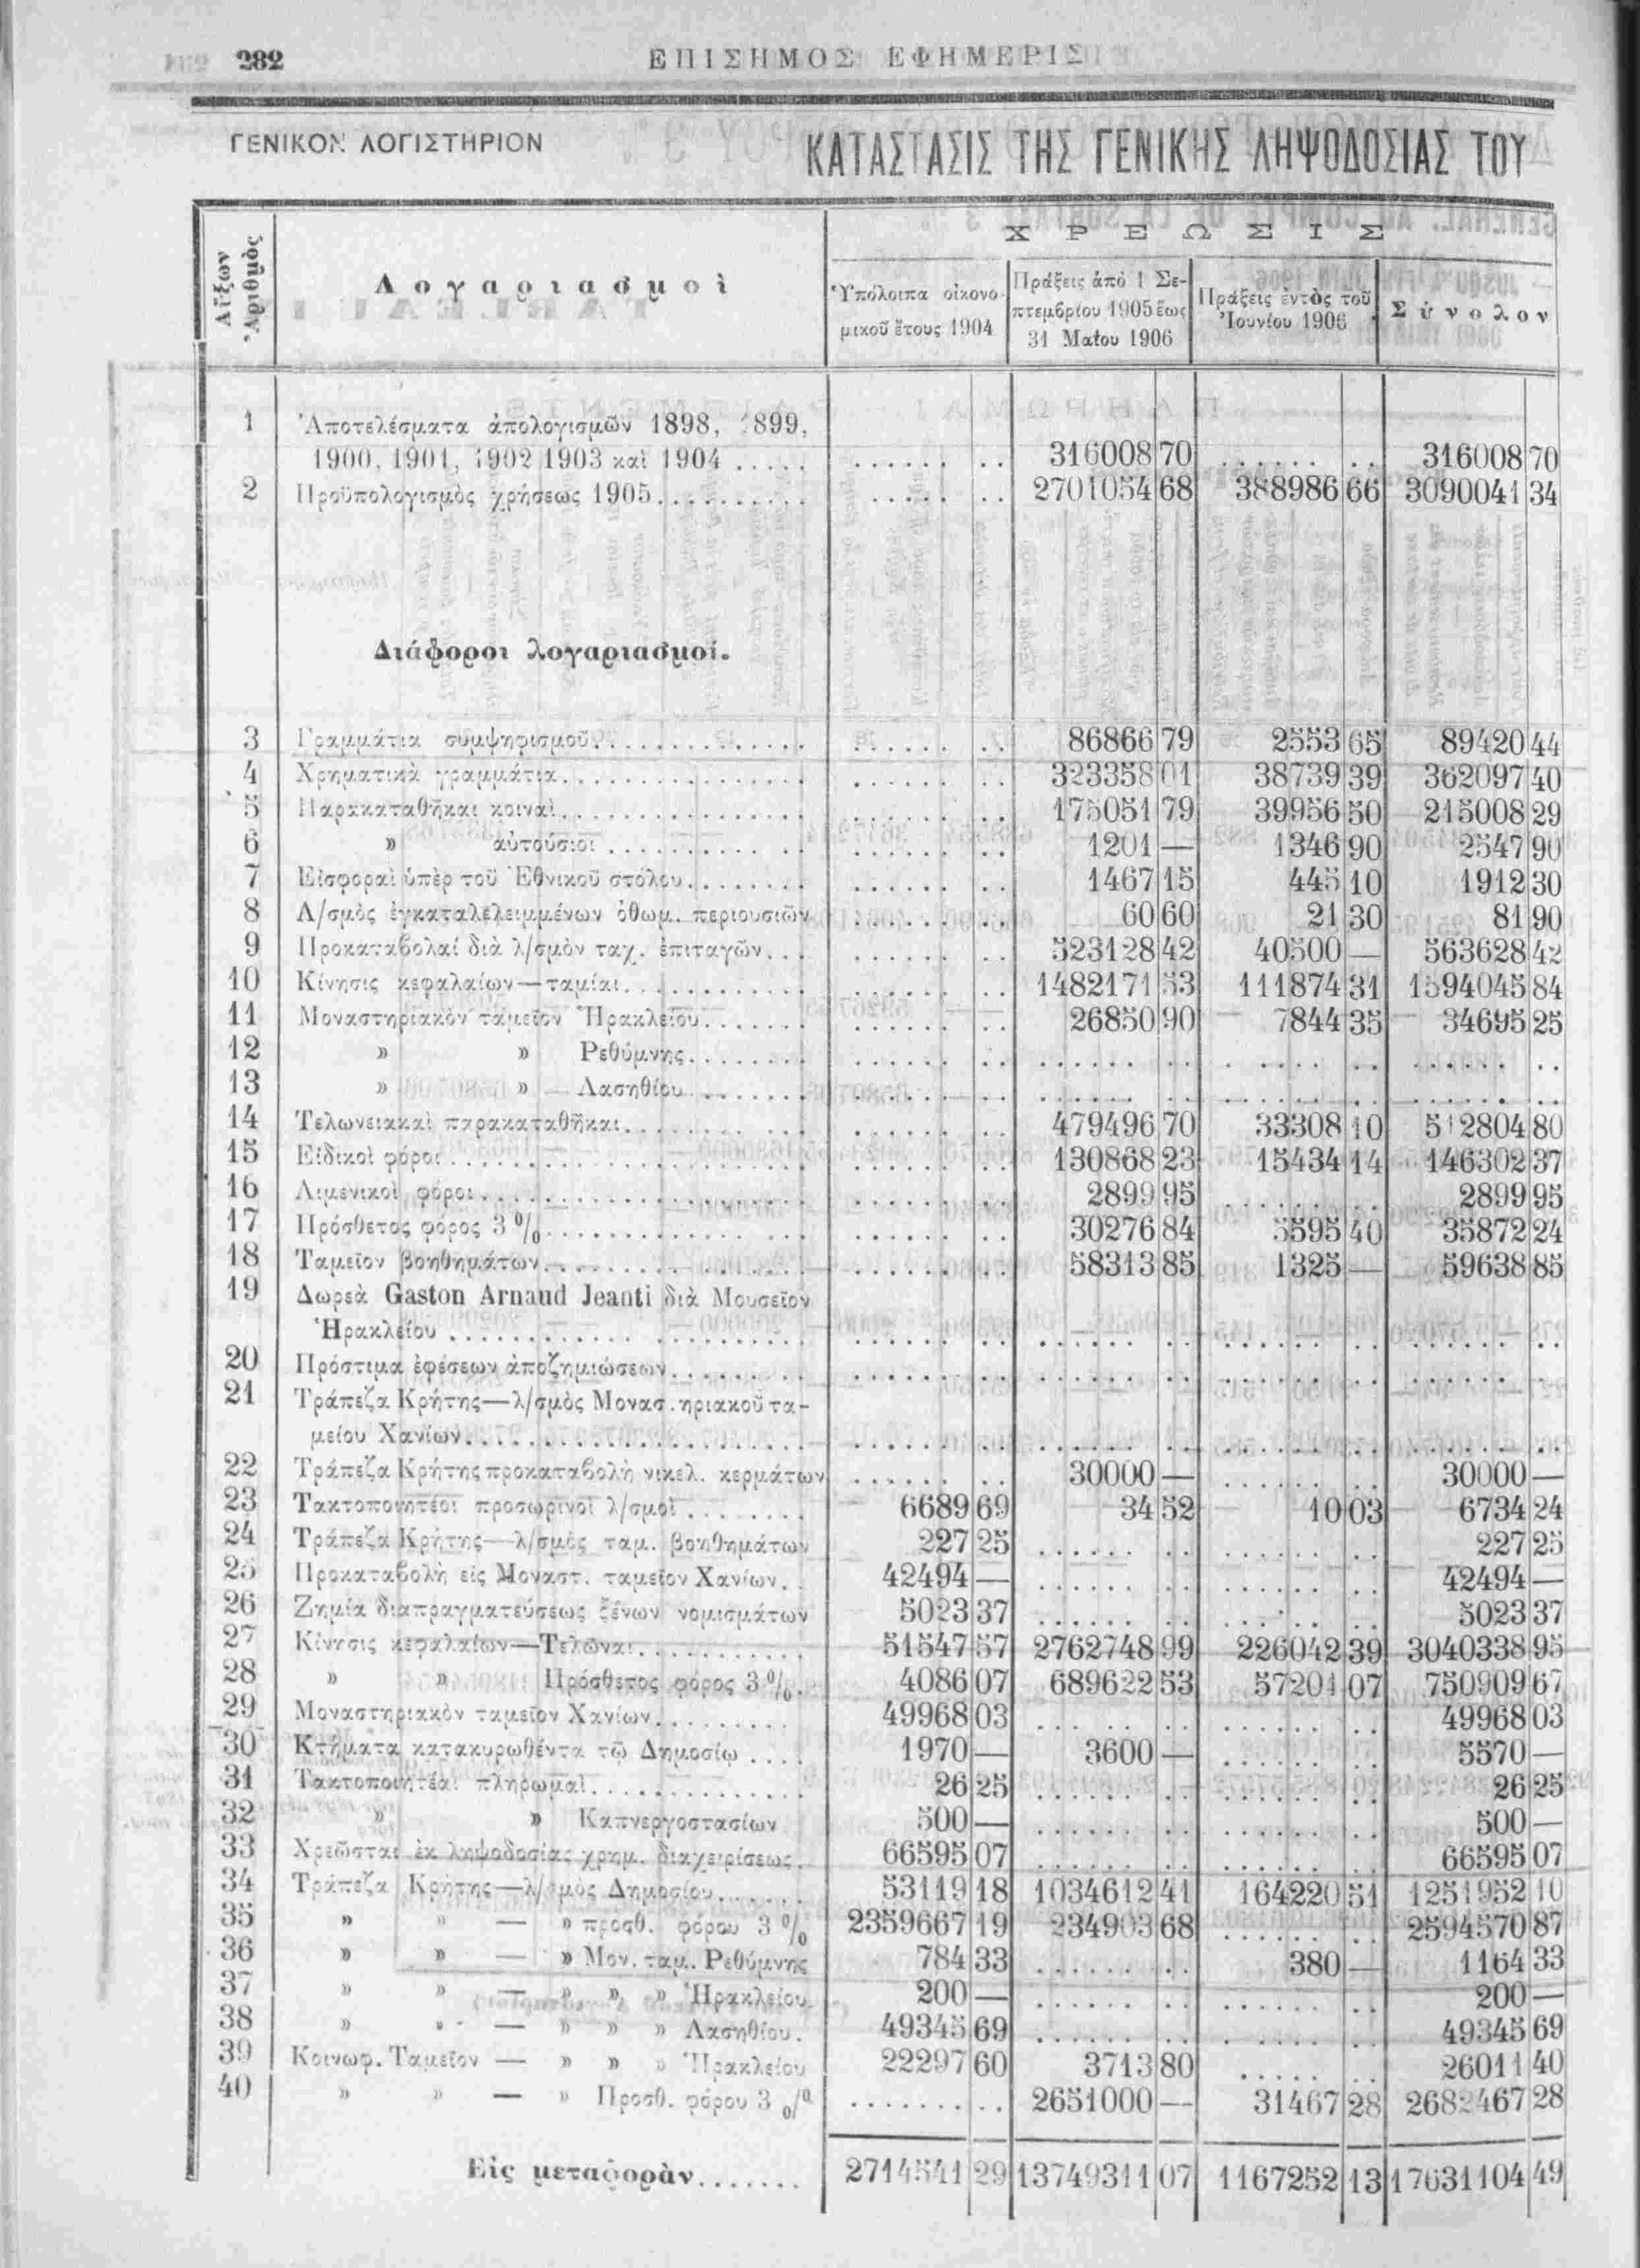 282
ΕΠΙΣΗΜΟΣ ΕΦΗΜΕΡΙΣ
ΓΕΝΙΚΟΝ ΛΟΓΙΣΤΗΡΙΟΝ
ΚΑΤΑΣΤΑΣΙΣ ΤΗΣ ΓΕΝΙΚΗΣ ΛΗΨΟΔΟΣΙΑΣ ΤΟΥ
Αὔξων Ἀριθμὸς
Λογαριασμοὶ
ΧΡΕΩΣΙΣ
Ὑπόλοιπα οἰκονομικοῦ ἔτους 1904
Πράξεις ἀπὸ 1 Σεπτεμβρίου 1905 ἕως 31 Μαΐου 1906
Πράξεις ἐντὸς τοῦ Ἰουνίου 1906
Σύνολον
1 Ἀποτελέσματα ἀπολογισμῶν 1898, 1899,
1900, 1901, 1902 1903 καὶ 1904 ..... ...... .. 316008 70 ...... .. 316008 70
2 Προϋπολογισμὸς χρήσεως 1905.......... ...... .. 2701054 68 388986 66 3090041 34
Διάφοροι λογαριασμοί.
3 Γραμμάτια συμψηφισμοῦ.............. ...... .. 86866 79 2553 65 89420 44
4 Χρηματικὰ γραμμάτια............... ...... .. 323358 01 38739 39 362097 40
5 Παρακαταθῆκαι κοιναὶ............... ...... .. 175051 79 39956 50 215008 29
6 » αὐτούσιοι ............ ...... .. 1201 — 1346 90 2547 90
7 Εἰσφοραὶ ὑπὲρ τοῦ Ἐθνικοῦ στόλου........ ...... .. 1467 15 445 10 1912 30
8 Λ/σμὸς ἐγκαταλελειμμένων ὀθωμ. περιουσιῶν ...... .. 60 60 21 30 81 90
9 Προκαταβολαί διὰ λ/σμὸν ταχ. ἐπιταγῶν.... ...... .. 523128 42 40500 — 563628 42
10 Κίνησις κεφαλαίων—ταμίαι............ ...... .. 1482171 53 111874 31 1594045 84
11 Μοναστηριακὸν ταμεῖον Ἡρακλείου....... ...... .. 26850 90 7844 35 34695 25
12 » » Ρεθύμνης........ ...... .. ...... .. ...... .. ...... ..
13 » » Λασηθίου........ ...... .. ...... .. ...... .. ...... ..
14 Τελωνειακαὶ παρακαταθῆκαι............ ...... .. 479496 70 33308 10 512804 80
15 Εἰδικοὶ φόροι...................... ...... .. 130868 23 15434 14 146302 37
16 Λιμενικοὶ φόροι.................... ...... .. 2899 95 ...... .. 2899 95
17 Πρόσθετος φόρος 3 %................ ...... .. 30276 84 5595 40 35872 24
18 Ταμεῖον βοηθημάτων................ ...... .. 58313 85 1325 — 59638 85
19 Δωρεὰ Gaston Arnaud Jeanti διὰ Μουσεῖον
Ἡρακλείου ...................... ...... .. ...... .. ...... .. ...... ..
20 Πρόστιμα ἐφέσεων ἀποζημιώσεων......... ...... .. ...... .. ...... .. ...... ..
21 Τράπεζα Κρήτης—λ/σμὸς Μονασ.ηριακοῦ τα-
μείου Χανίων..................... ...... .. ...... .. ...... .. ...... ..
22 Τράπεζα Κρήτης προκαταβολὴ νικελ. κερμάτων ...... .. 30000 — ...... .. 30000 —
23 Τακτοποιητέοι προσωρινοὶ λ/σμοὶ ........ 6689 69 34 52 10 03 6734 24
24 Τράπεζα Κρήτης—λ/σμὸς ταμ. βοηθημάτων 227 25 ...... .. ...... .. 227 25
25 Προκαταβολὴ εἰς Μοναστ. ταμεῖον Χανίων.. 42494 — ...... .. ...... .. 42494 —
26 Ζημία διαπραγματεύσεως ξένων νομισμάτων 5023 37 ...... .. ...... .. 5023 37
27 Κίνησις κεφαλαίων—Τελῶναι............ 51547 57 2762748 99 226042 39 3040338 95
28 » » Πρόσθετος φόρος 3 %. 4086 07 689622 53 57201 07 750909 67
29 Μοναστηριακὸν ταμεῖον Χανίων.......... 49968 03 ...... .. ...... .. 49968 03
30 Κτήματα κατακυρωθέντα τῷ Δημοσίῳ .... 1970 — 3600 — ...... .. 5570 —
31 Τακτοποιητέαι πληρωμαὶ.............. 26 25 ...... .. ...... .. 26 25
32 » » Καπνεργοστασίων 500 — ...... .. ...... .. 500 —
33 Χρεῶσται ἐκ ληψοδοσίας χρημ. διαχειρίσεως. 66595 07 ...... .. ...... .. 66595 07
34 Τράπεζα Κρήτης—λ/σμὸς Δημοσίου....... 53119 18 1034612 41 164220 51 1251952 10
35 » » — » προσθ. φόρου 3 % 2359667 19 234903 68 ...... .. 2594570 87
36 » » — » Μον. ταμ. Ρεθύμνης 784 33 ...... .. 380 — 1164 33
37 » » — » » » Ἡρακλείου. 200 — ...... .. ...... .. 200 —
38 » » — » » » Λασηθίου. 49345 69 ...... .. ...... .. 49345 69
39 Κοινωφ. Ταμεῖον — » » » Ἡρακλείου 22297 60 3713 80 ...... .. 26011 40
40 » » — » Προσθ. φόρου 3 0/0 ...... .. 2651000 — 31467 28 2682467 28
Εἰς μεταφορὰν....... 2714541 29 13749311 07 1167252 13 17631104 49